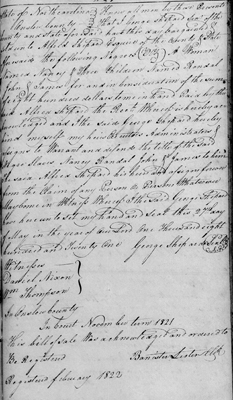 State of North Carolina
Know all men by these Presents
that I George Shepard
County and State aforesaid have this day bargained
Albert Shepard Esquire of the
the following Negroes A Woman
Named Nancy & three Children Named Randal
John & James for and in consideration of the sum
hundred dollars to me in hand Paid by the
said Albert Shepard the Receipt Whereof is hereby
And I the said George Shepard hereby
myself my heirs Executors Administrators &
to Warrant and defend the title of the said
Slaves Nancy Randal John & James to him
the said Albert Shepard his heirs and assigns forever
from the Claim of any Person or Persons Whatsoever
In Witness Whereof I the said George Shepard
have hereunto set my hand and seal this 27 day
of May in the year of our Lord One thousand eight
hundred and Twenty One George Shepard Seal
Witnesses
Daniel Nixon
Thompson
Onslow County
In Court November term 1821
This bill of sale Was acknowledged and ordered to
be Registered
Bannister Lester Clk
Registered february 1822